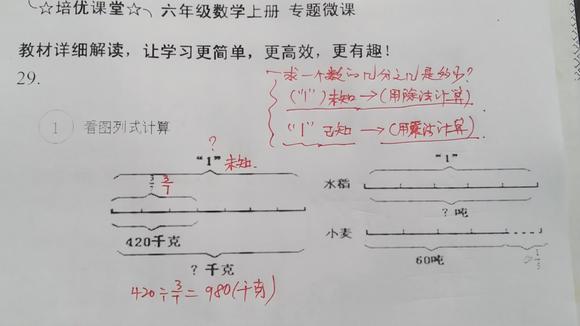 ☆培优课堂☆ 六年级数学上册 专题微课
教材详细解读，让学习更简单，更高效，更有趣！
29.
求一个数的几分之几是多少？
("1")未知→(用除法计算)
"1"已知→(用乘法计算)
1 看图列式计算
?
"1" 未知.
3/7 3/7
420千克
? 千克
420÷3/7=980(千克)
"1"
水稻
? 吨
小麦
60吨
1/5